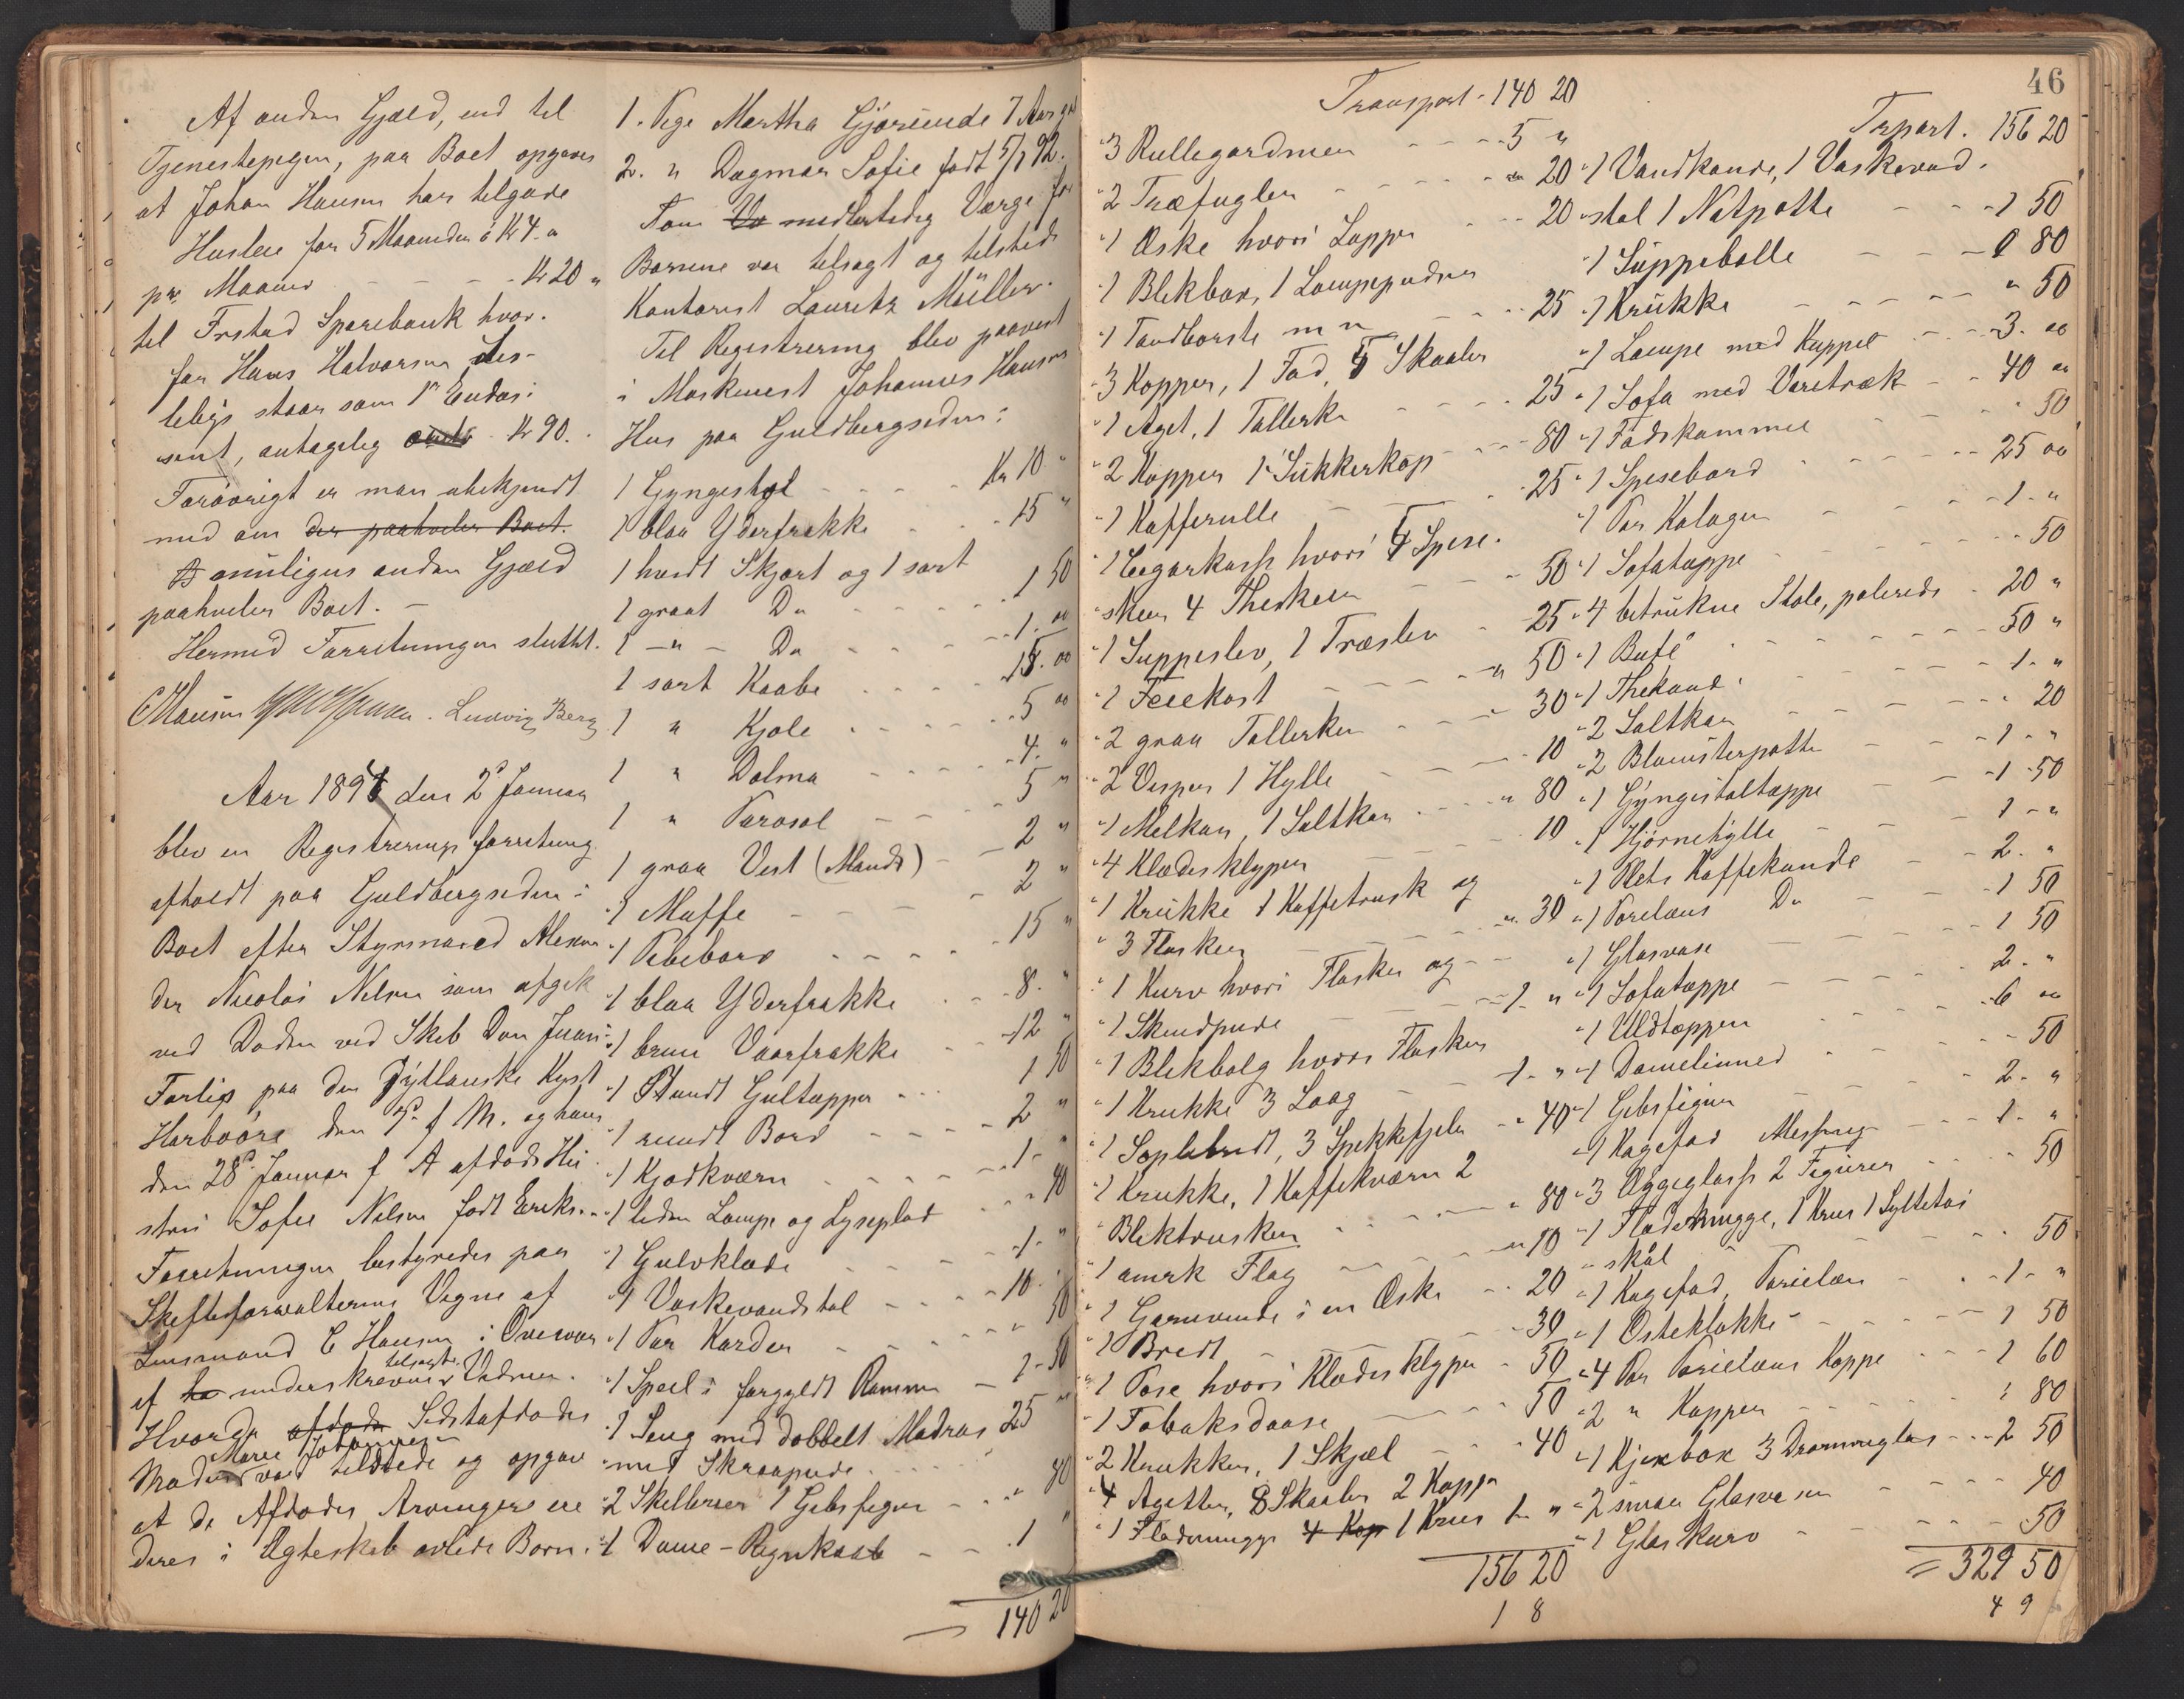 Af anden Gjæld, end til
Tjenestepigen, paa Boet opgaves
at Johan Hansen har tilgode
Husleie for 5 Maaneder à Kr 4. „
pr. Maaned - - - Kr 20 „
til Frstad Sparebank hvor-
for Hans Halvorsen
staar som 1ste Endos-
sent, antagelig Kr 90.
Forøvrigt er man ubekjendt
med om der paahviler Boet
anden Gjæld
paahviler Boet. -
Hermed Forretningen sluttet.
CHansen Ludvig Berg
Aar 1894 den 2d Januar
blev en Registreringsforretning
afholdt paa Guldbergsiden i
Boet efter Styrmand Alexan-
der Nicolai Nelsen som afgik
ved Døden ved Skib Don Juans
Forlis paa den Jydlanske Kyst
Harboøre den 7de f M. og hans
den 28d Januar f A afdøde Hu-
stru Sofie Nelsen født Eriks.
Forretningen bestyredes paa
Skifteforvalterens Vegne af
Lensmand C Hansen i Overvær
af underskrevne tilsagte Vidner.
Hvorda afdøde Sidstafdødes
Moder Marie Johannesen var tilstede og opgav
at de Afdødes Arvinger ere
deres i Ægteskab avlede Børn:
1. Pige Martha Gjørinde 7 Aar gl
2. „ Dagmar Sofie født 5/7 92.
Som midlertidig Værge for
Børnene var tilsagt og tilstede
Kontorist Lauritz Müller.
Til Registrering blev paavist
i Maskinist Johannes Hansens
Hus paa Guldbergsiden:
1 Gyngestol - - - Kr 10 „
1 blaa Yderfrakke - - 15 „
1 hvidt Skjørt og 1 sort
1 graat Do - - - 1 50
1 - „ - Do - - - 1. 00
1 sort Kaabe - - - 15. 00
1 „ Kjole - - - 5 00
1 „ Dolma - - - 4. „
1 „ Parasol - - 5 „
1 graa Vest (Mands) - 2 „
1 Muffe - - - 2 „
1 Pebebord - - - 15 „
1 blaa Yderfrakke - - 8. „
1 brun Vaarfrakke - - 12 „
1 Gultæpper - - 1 50
1 rundt Bord - - - 2 „
1 Kjødkværn - - - 1- „
1 liden Lampe og Lyseplad - - 40
1 Gulvklæde - - - 1- „
1 Vaskevandstol - - - 10. „
1 Par Karder - - - „ 50
1 Speil i forgyldt Ramme - 1-50
1 Seng med dobbelt Madras 25 „
med Skraapude.
2 Skillerier 1 Gibsfigur - - „ 40
1 Dame-Regnkaab - - 1 „
140 20
46
Transport - 140 20
3 Rullegardiner - - - 5 „
2 Træfugler - - - „ 20
1 Æske hvori Lapper - - 20
1 Blekbox, 1 Lampepudser
1 Tandbørste m n - - 25
3 Kopper, 1 Fad, 5 Skaaler
1 Aget, 1 Tallerk - - - 25
2 Kopper 1 Sukkerkop - - 80
1 Kafferulle - - - 25
1 Cigarkasse hvori 4 Spise-
skeer 4 Theskeer - - - 50
1 Suppeslev, 1 Træslev - 25
1 Feiekost - - - „ 50
2 graa Tallerken - - - 30
2 Visper 1 Hylle - - - 10
1 Melkan, 1 Saltkar - - „ 80
4 Klædesklyper - - - 10
1 Krukke 1 Kaffetrusk og
3 Flasker - - - „ 30
1 Kurv hvori Flasker og - -
1 Skindpude - - - 1- „
1 Blekbolg hvori Flasker
1 Krukke 3 Laag - - 1- „
1 Soplebret, 3 Spekkefjeler - „ 40
1 Krukke, 1 Kaffekværn 2
Blektrusker - - - „ 80
1 amrk Flag - - - „ 10
1 Garnvinde i en Æske - - 20
1 Bredt - - - 30
1 Pose hvori Klædesklyper - 50
1 Tobaksdaase - - - 50
2 Krukker, 1 Skjæl - - - 40
4 Agetter, 8 Skaaler 2 Kopper
1 Flødemugge 4 Kop 1 Krus 1- „
156 20
1 8
Trport. 156 20
1 Vandkande, 1 Vaskevand-
stel 1 Natpotte - - - 1 50
1 Suppebolle - - - 0 80
1 Krukke - - - „ 50
1 Lampe med Kuppel - - 3. 00
1 Sofa med Varetræk - - 40 00
1 Fodskammel - - - 50
1 Spisebord - - - 25 00
1 Par Kalager - - - 1. „
1 Sofatæppe - - - 50
4 betrukne Stole, polerede - 20 „
1 Bufé - - - 50 „
1 Thekand. - - - 1- „
2 Saltkar - - - 20
2 Blomsterpotter - - - 1 - „
1 Gyngestoltæppe - - 1-50
1 Hjørnehylle - - - 1 - „
1 Plets Kaffekande - - 2. „
1 Porelæns Do - - - 1 50
1 Glasvase - - - 1 50
1 Sofatæppe - - - 2. „
1 Uldtæppen - - - 6 00
1 Damelinned - - - 50
1 Gibsfigur - - - 2. „
1 Kagefad Messing - - 1- „
3 Æggeglass 2 Figurer - - 50
1 Flødemugge, 1 Krus 1 Syltetøi
skål - - - 50
1 Kagefad, Porielæn - - 1- „
1 Osteklokke - - - 1 50
4 Par Porielæns Koppe - - 1 60
2 „ Kopper - - - 1 80
1 Kjexbox 3 Dramreglas - - 2 50
2 smaa Glasvaser - - - 40
1 Glas Kurv - - - 50
= 329 50
4 9